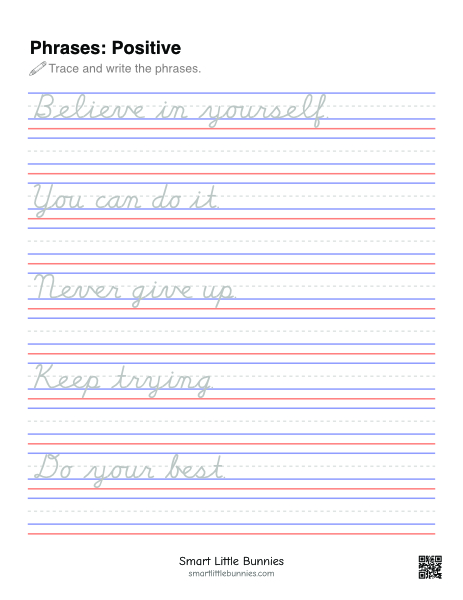 Phrases: Positive
Trace and write the phrases.
Believe in yourself.
You can do it.
Never give up.
Keep trying.
Do your best.
Smart Little Bunnies
smartlittlebunnies.com